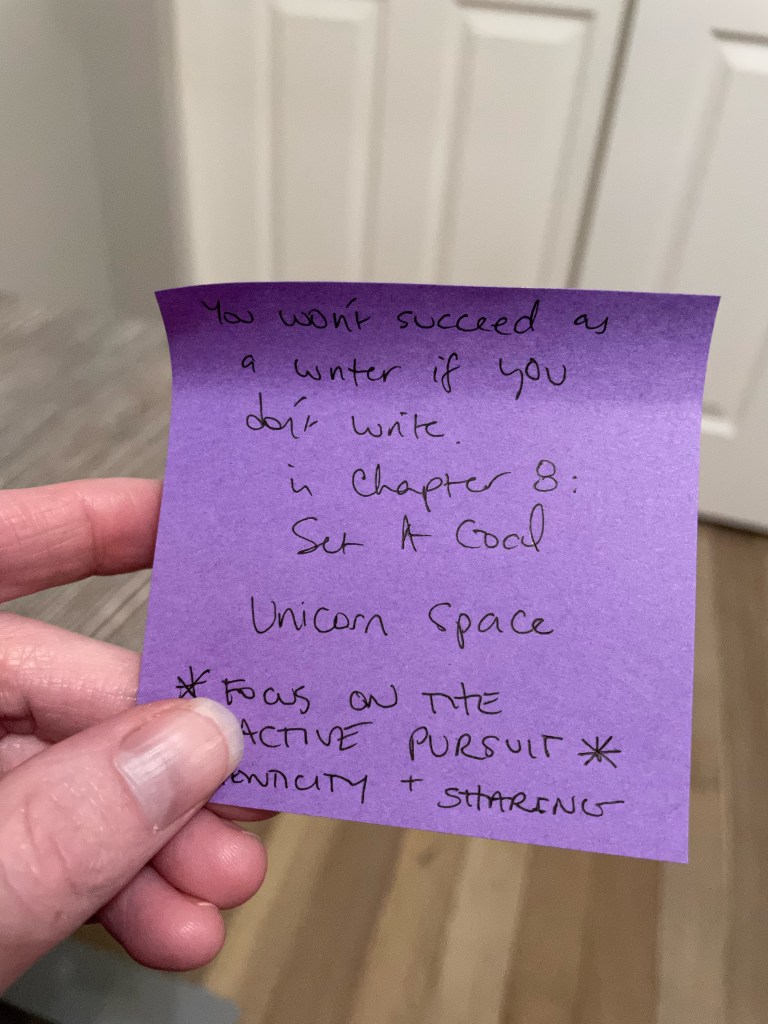 You won't succeed as
a writer if you
don't write.
in Chapter 8:
Set A Goal
Unicorn Space
* FOCUS ON THE
ACTIVE PURSUIT *
+ SHARING